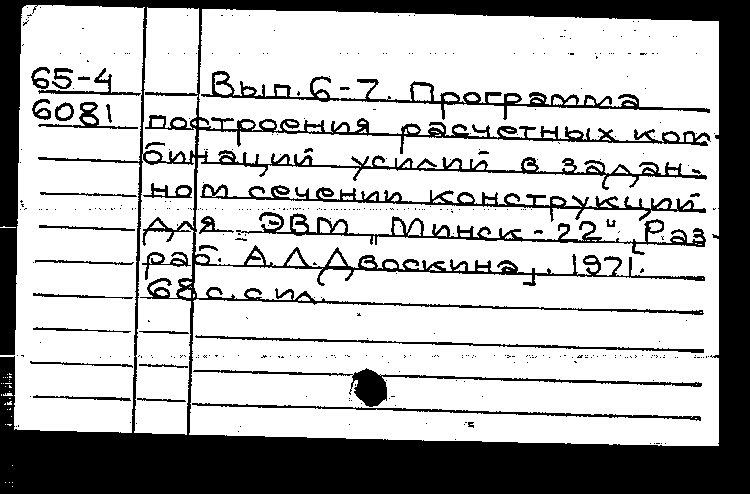 65-4 Вып. 6-7. Программа
6081 построения расчетных ком-
бинаций усилий в задан-
ном сечении конструкций
для ЭВМ "Минск-22". [Раз-
раб. А.Л. Двоскина]. 1971.
68 с. с ил.